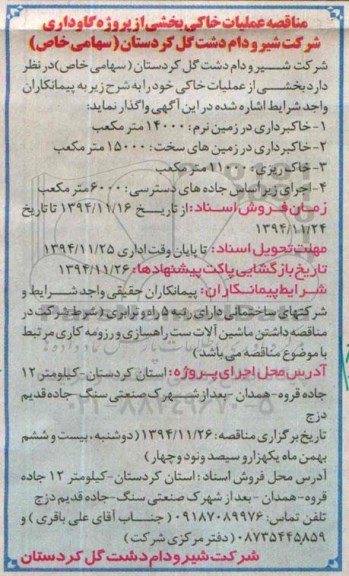 مناقصه عملیات خاکی بخشی از پروژه گاوداری
شرکت شیر و دام دشت گل کردستان (سهامی خاص)
شرکت شیر و دام دشت گل کردستان (سهامی خاص) در نظر
دارد بخشی از عملیات خاکی خود را به شرح زیر به پیمانکاران
واجد شرایط اشاره شده در این آگهی واگذار نماید:
۱- خاکبرداری در زمین نرم: ۱۴۰۰۰ متر مکعب
۲- خاکبرداری در زمین های سخت: ۱۵۰۰۰ متر مکعب
۳- خاک ریزی: ۱۱۰۰۰ متر مکعب
۴- اجرای زیر اساس جاده های دسترسی: ۶۰۰۰ متر مکعب
زمان فروش اسناد: از تاریخ ۱۳۹۴/۱۱/۱۶ تا تاریخ
۱۳۹۴/۱۱/۲۴
مهلت تحویل اسناد: تا پایان وقت اداری ۱۳۹۴/۱۱/۲۵
تاریخ بازگشایی پاکت پیشنهادها: ۱۳۹۴/۱۱/۲۶
شرایط پیمانکاران: پیمانکاران حقیقی واجد شرایط و
شرکتهای ساختمانی دارای رتبه ۵ راه و ترابری (شرط شرکت در
مناقصه داشتن ماشین آلات ست راهسازی و رزومه کاری مرتبط
با موضوع مناقصه می باشد)
آدرس محل اجرای پروژه: استان کردستان-کیلومتر ۱۲
جاده قروه-همدان -بعد از شهرک صنعتی سنگ-جاده قدیم
دزج
تاریخ برگزاری مناقصه: ۱۳۹۴/۱۱/۲۶ (دوشنبه، بیست و ششم
بهمن ماه یکهزار و سیصد و نود و چهار)
آدرس محل فروش اسناد: استان کردستان-کیلومتر ۱۲ جاده
قروه-همدان -بعد از شهرک صنعتی سنگ-جاده قدیم دزج
تلفن تماس: ۰۹۱۸۷۰۸۹۹۷۶ (جناب آقای علی باقری) و
۰۸۷۳۵۴۴۵۸۵۹ (دفتر مرکزی شرکت)
شرکت شیر و دام دشت گل کردستان